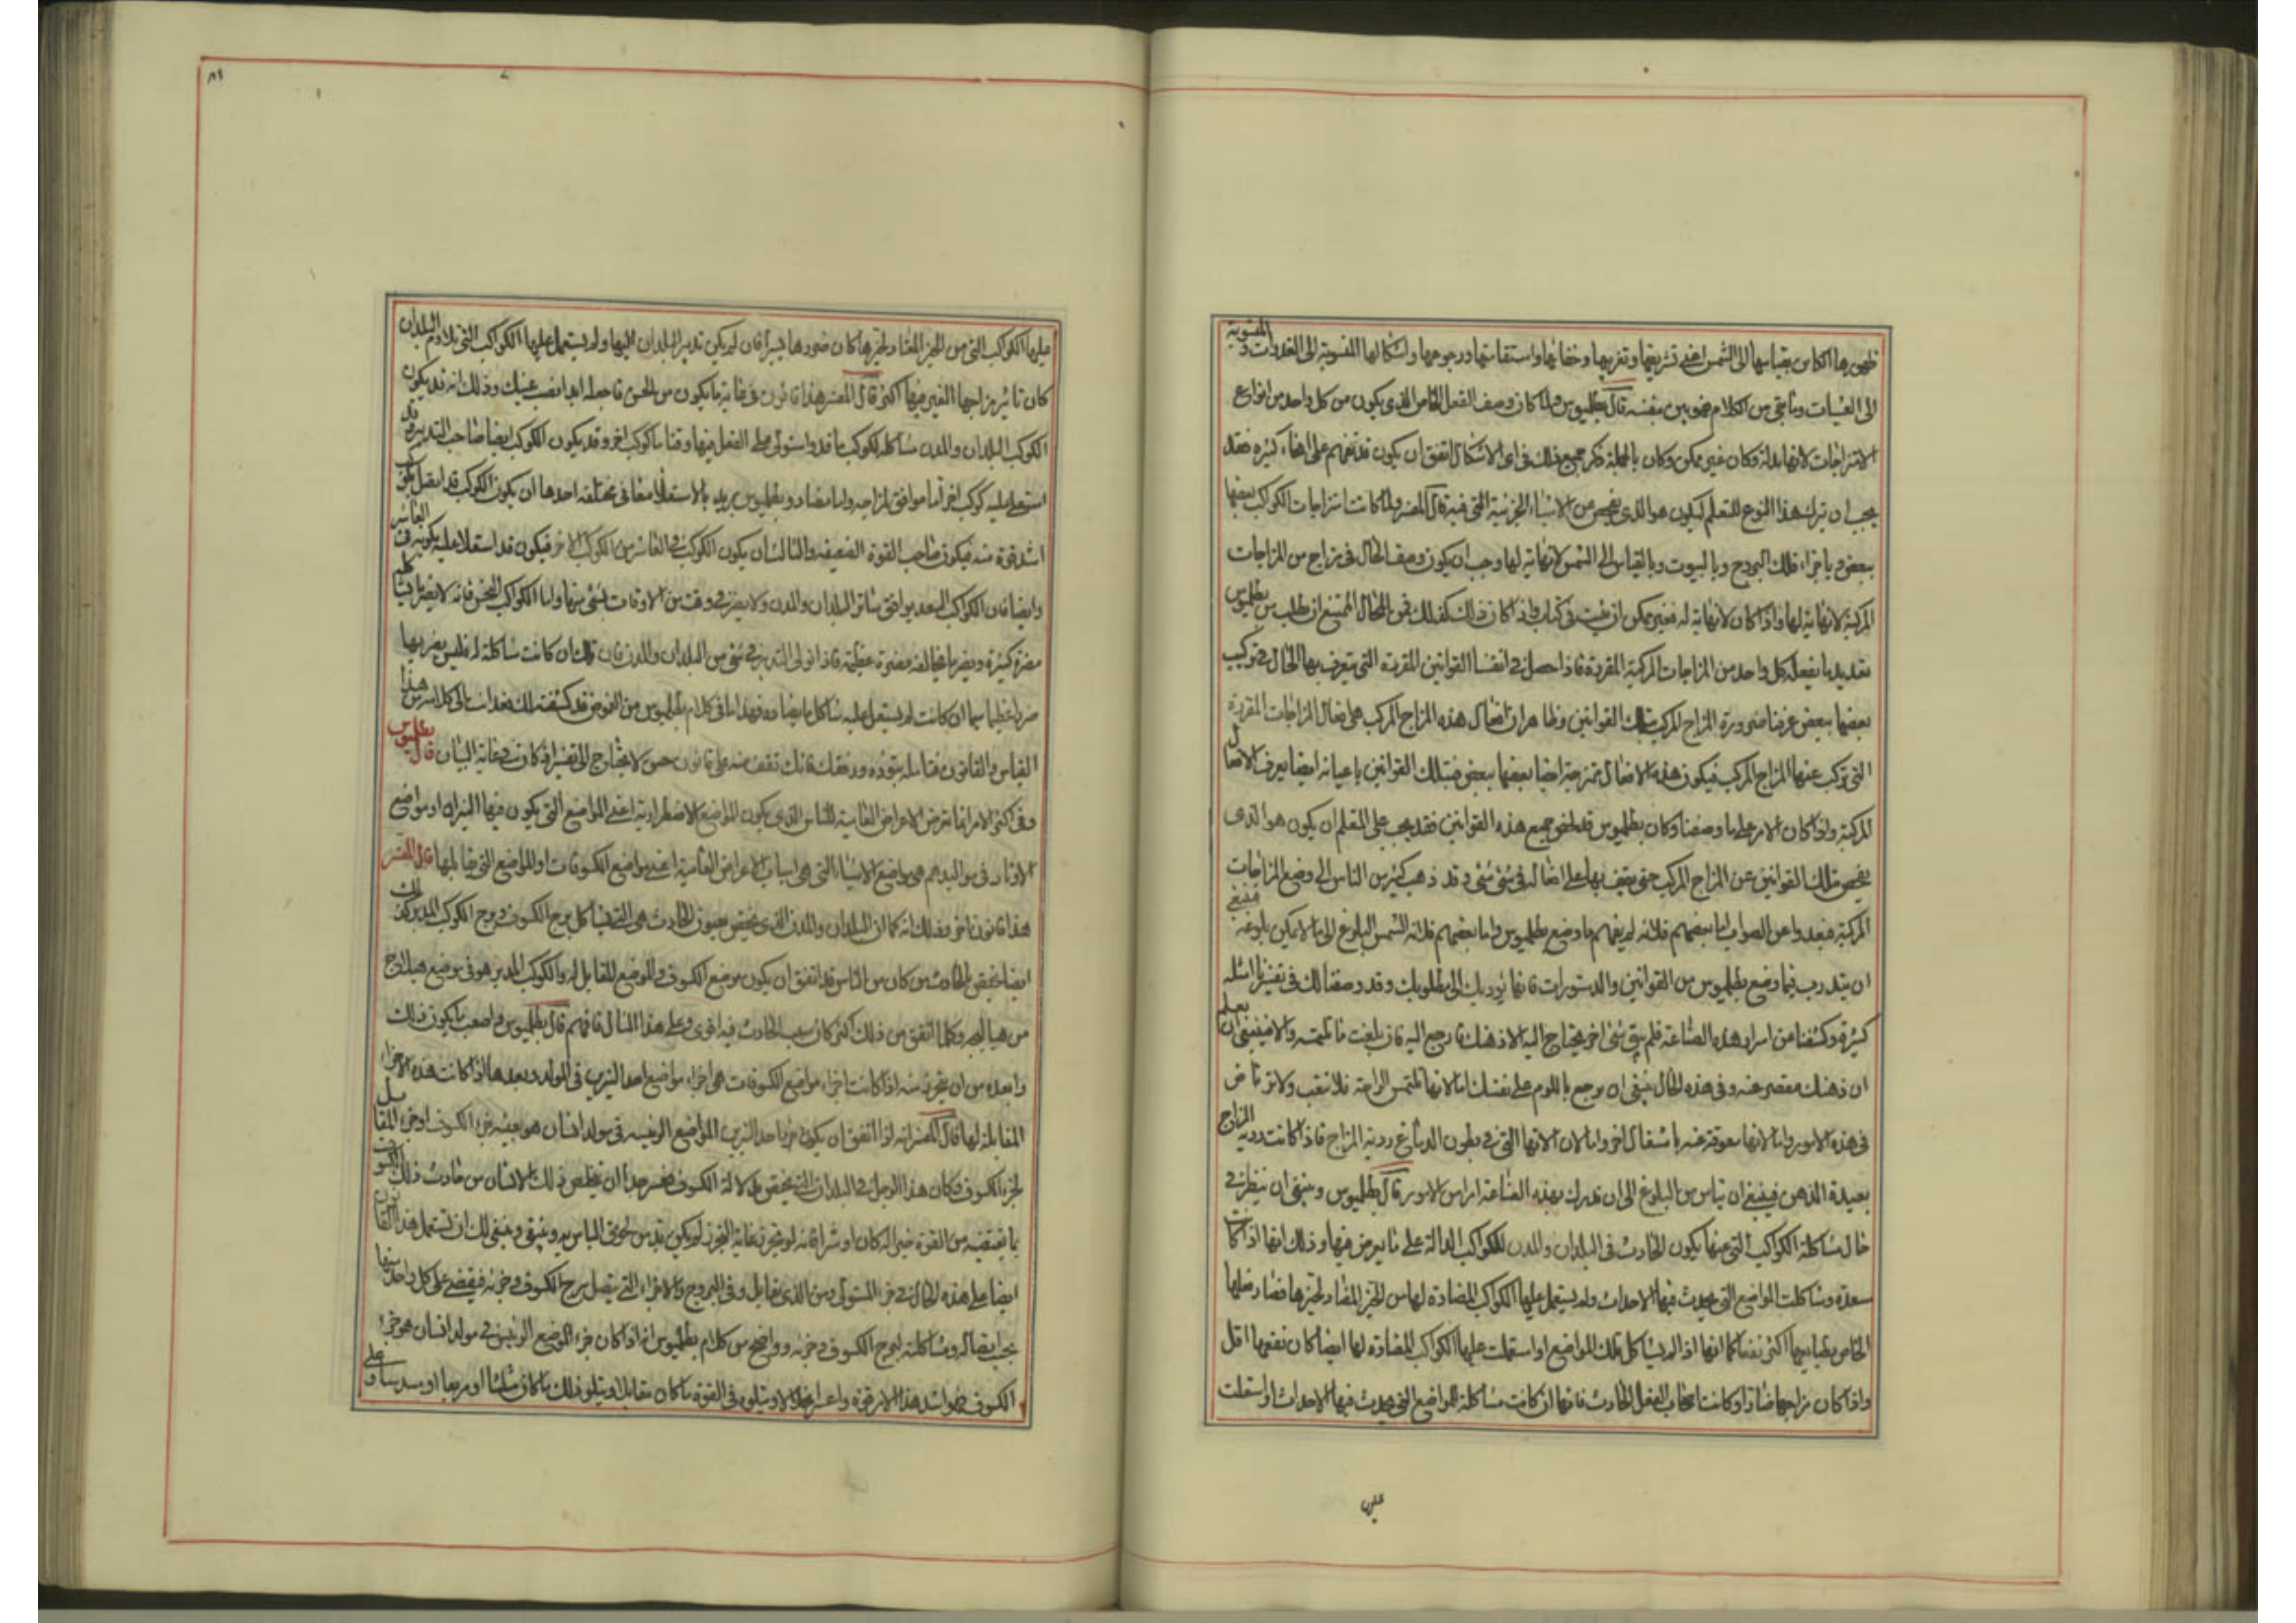 ظهورها الكائن بقياسها الى الشمس اعني تشريقها وتغريبها وخفائها واستقامتها ورجوعها واشكالها المنسوبة الى الغدوات والمنسوبة
الى العشيات وما بقي من الكلام فهو بين بنفسه قال بطلميوس ولما كان وصف الفعل الخاص الذي يكون من كل واحد من انواع
الامتزاجات لانها بلا نهاية وكان غير ممكن وكان بالجملة ذكر جميع ذلك في اي الاشكال اتفق ان يكون قد تفهم على انحاء كثيرة فقد
يجب ان يترك هذا النوع للتعلم ليكون هو الذي يفحص عن الاشياء الجزئية التي فيه قال المفسر ولما كانت امتزاجات الكواكب بعضها
ببعض وباجزاء فلك البروج وبالبيوت وبالقياس الى الشمس لا نهاية لها وجب ان يكون وصف الحال في مزاج من المزاجات
المركبة لا نهاية لها واذا كان لا نهاية له فغير ممكن ان يثبت في كتاب واذا كان ذلك كذلك فمن المحال الممتنع ان يطلب من بطلميوس
تعديد ما يفعله كل واحد من المزاجات المركبة المفردة فاذا حصل في انفسنا القوانين المفردة التي يتعرف بها الحال في تركيب
بعضها ببعض عرفنا ضرورة المزاج المركب بتلك القوانين وظاهر ان افعال هذه المزاج المركب هي افعال المزاجات المفردة
التي تركب عنها المزاج المركب فيكون هذه الافعال ممتزجة ايضا بعضها ببعض فبتلك القوانين باعيانها ايضا يعرف الافعال
المركبة واذا كان الامر على ما وصفنا وكان بطلميوس قد لخص جميع هذه القوانين فقد يجب على المتعلم ان يكون هو الذي
يفحص بتلك القوانين عن المزاج المركب حتى يقف بها على افعاله في شئ شئ وقد ذهب كثير من الناس الى وضع المزاجات
المركبة فبعدوا عن الصواب اما بعضهم فلانه لم يفهم ما وضع بطلميوس واما بعضهم فلانه التمس البلوغ الى ما لا يمكن بلوغه فينبغي
ان يتدرب فيما وضع بطلميوس من القوانين والدستورات فانها تؤديك الى مطلوبك وقد وصفنا لك في تفسيرنا امثلة
كثيرة وكشفنا عن اسرار هذه الصناعة فلم يبق شئ اخر يحتاج اليه الا ذهنك فارجع اليه فان بلغت ما تلتمسه والا فينبغي ان تعلم
ان ذهنك مقصر عنه وفي هذه الحال ينبغي ان يرجع باللوم على نفسك اما لانها تلتمس الراحة فلا تتعب ولا ترتاض
في هذه الامور واما لانها معوقة عنه باشغال اخر واما لان الالة التي في بطون الدماغ ردية المزاج فاذا كانت ردية المزاج
بعيدة الذهن فينبغي ان تياس من البلوغ الى ان تدرك بهذه الصناعة امرا من الامور قال بطلميوس وينبغي ان ينظر في
حال مشاكلة الكواكب التي عنها يكون الحادث في البلدان والمدن للكواكب الدالة على ما يعرض فيها وذلك انها اذا كانت
سعدة وشاكلت المواضع التي يحدث فيها الاحداث ولم يستعل عليها الكواكب المضادة لها من الحيز المضاد لحيزها فضار فعلها
الخاص بطبايعها اكثر نفعا كما انها اذا لم يشاكل تلك المواضع او استعلت عليها الكواكب المضادة لها ايضا كان نفعها اقل
واذا كان مزاجها ضارا وكانت اصحاب الفعل الحادث فانها ان كانت مشاكلة للمواضع التي يحدث فيها الاحداث او استعلت
عليها
٨١
عليها الكواكب التي من الحيز المضاد لحيزها كان ضررها يسيرا فان لم يكن تدبير البلدان اليها ولم يستعمل عليها الكواكب التي تلاوم البلدان
كان تاثير مزاجها الغير منها اكثر قال المفسر هذا قانون في غاية ما يكون من الحسن فاجعله ابدا نصب عينيك وذلك انه قد يكون
الكوكب البلدان والمدن مشاكلة لكوكب ما قد استولى على الفعل فيها وقتا ما كوكب اخر وقد يكون الكوكب ايضا صاحب التدبير وقد
استعلى عليه كوكب اخر اما موافق لمزاجه واما مضاد وبطلميوس يريد بالاستعلاء معاني مختلفة احدها ان يكون الكوكب قد اتصل بكوكب
اشد قوة منه فيكون صاحب القوة الضعيفة والثالث ان يكون الكوكب في العاشر من الكوكب الاخر فيكون قد استعلا عليه بكونه في العاشر
وايضا فان الكواكب السعد يوافق سائر البلدان والمدن ولا يضر في وقت من الاوقات بشئ منها واما الكواكب النحس فانه لا يضر بما يشاكله
مضرة كثيرة ويضر بما يخالفه مضرة عظيمة فاذا تولى التدبير في شئ من البلدان والمدن فان تلك ان كانت شاكلة له فليس يضر بها
ضررا عظيما سيما ان كانت لم يستعل عليه شاكل ما يضاده فهذا ما في كلام بطلميوس من الغوض قد كشفته لك فعد انت الى كلامه من هذا
القياس والقانون فتامله بتؤده ورفق فانك تقف منه على قانون حسن لا يحتاج الى تفسير اذ كان في غاية البيان قال بطلميوس
وفي اكثر الامر انما تعرض الاعراض العامية للناس الذي يكون المواضع الاضطرارية اعني المواضع التي يكون فيها النيران او مواضع
الاوتاد في مواليدهم هي مواضع الاشياء التي هي اسباب الاعراض العامية اعني مواضع الكسوفات او المواضع التي يقابلها قال المفسر
هذا قانون اخر وذلك انه كما ان البلدان والمدن الذي يختص بحدوث الحادث هي التي يشاكل برج الكسوف وبرج الكوكب المدبر كذلك
ايضا يختص بالحادث من كان من الناس قد اتفق ان يكون موضع الكسوف والموضع المقابل له والكوكب المدبر هو في موضع هيلاج
من هيالجه وكلما اتفق من ذلك اكثر كان سبب الحادث فيه اقوى وعلى هذا المثال فافهم قال بطلميوس واصعب ما يكون ذلك
وابعده من ان يتحرز منه اذا كانت اجزاء مواضع الكسوفات هي اجزاء مواضع احد النيرين في المولد وبعدها اذا كانت هذه الاجزاء
المقابلة لها قال المفسر انه اذا اتفق ان يكون جزء احد النيرين المواضع الرئيسة في مولد انسان هو بعينه جزء الكسوف او جزء المقابل
لجزء الكسوف وكان هذا الرجل في البلدان التي يختص بدلالة الكسوف فعسر جدا ان يتخلص ذلك الانسان من حادث ذلك الكسوف
بما يقتضيه من القوة خيرا كان او شرا فانه لو يتحرز غاية التحرز لم يكن بد من لحوق الباس به وينبغي لك ان تستعمل هذا القانون
ايضا على هذه الحال في جزء المستولى ومن الذي يقابل وفي البروج والاجزاء التي يتصل ببرج الكسوف وجزئه فيقضى على كل واحد منها
بحسب اتصاله ومشاكلته لبرج الكسوف وجزئه وواضح من كلام بطلميوس انه اذا كان جزء الموضع الرئيس في مولد انسان هو جزء
الكسوف فهو اشد هذا الامر قوة واعسر تخلصا ويتلوه في القوة ما كان مقابلا ويتلو ذلك ما كان مثلثا او مربعا او مسدسا وعلى